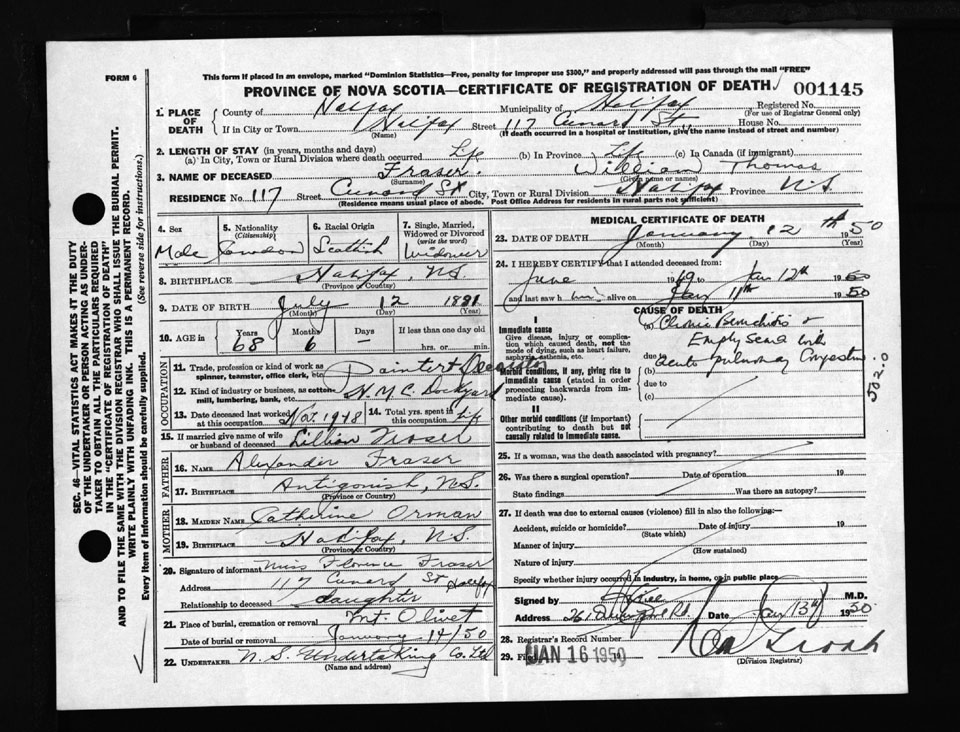 FORM 6
This form if placed in an envelope, marked "Dominion Statistics—Free, penalty for improper use $300," and properly addressed will pass through the mail "FREE"
PROVINCE OF NOVA SCOTIA—CERTIFICATE OF REGISTRATION OF DEATH 001145
1. PLACE OF DEATH County of Halifax Municipality of Halifax Registered No.
(For use of Registrar General only)
If in City or Town Halifax Street 117 Cunard St. House No.
(Name) (If death occurred in a hospital or institution, give the name instead of street and number)
2. LENGTH OF STAY (in years, months and days)
(a) In City, Town or Rural Division where death occurred Life (b) In Province Life (c) In Canada (if immigrant)
3. NAME OF DECEASED Fraser. William Thomas
(Surname) (Given name or names)
RESIDENCE No. 117 Street Cunard St. City, Town or Rural Division Halifax Province N.S.
(Residence means usual place of abode. Post Office Address for residents in rural parts not sufficient)
4. Sex Male
5. Nationality (Citizenship) Canadian
6. Racial Origin Scottish
7. Single, Married, Widowed or Divorced (write the word) Widower
8. BIRTHPLACE Halifax, N.S.
(Province or Country)
9. DATE OF BIRTH July 12 1881
(Month) (Day) (Year)
10. AGE in Years 68 Months 6 Days — If less than one day old hrs. or min.
OCCUPATION
11. Trade, profession or kind of work as spinner, teamster, office clerk, etc. Painter
12. Kind of industry or business, as cotton mill, lumbering, bank, etc. H.M.C. Dockyard
13. Date deceased last worked at this occupation Oct. 1948 14. Total yrs. spent in this occupation Life
15. If married give name of wife or husband of deceased Lillian
FATHER
16. NAME Alexander Fraser
17. BIRTHPLACE Antigonish, N.S.
(Province or Country)
MOTHER
18. MAIDEN NAME Catherine Orman
19. BIRTHPLACE Halifax, N.S.
(Province or Country)
20. Signature of informant Miss Florence Fraser
Address 117 Cunard St Halifax
Relationship to deceased daughter
21. Place of burial, cremation or removal Mt. Olivet
Date of burial or removal January 14/50
22. UNDERTAKER N.S. Undertaking Co. Ltd
(Name and address)
MEDICAL CERTIFICATE OF DEATH
23. DATE OF DEATH January 12th 1950
(Month) (Day) (Year)
24. I HEREBY CERTIFY that I attended deceased from:
June 1949 to Jan 12th 1950
and last saw him alive on Jan 11th 1950
CAUSE OF DEATH
I
Immediate cause
Give disease, injury or complication which caused death, not the mode of dying, such as heart failure, asphyxia, asthenia, etc.
Morbid conditions, if any, giving rise to immediate cause (stated in order proceeding backwards from immediate cause).
II
Other morbid conditions (if important) contributing to death but not causally related to immediate cause.
(a) Chronic Bronchitis &
Emphysema with
due to acute Pulmonary Congestion
(b)
due to
(c)
502.0
25. If a woman, was the death associated with pregnancy?
26. Was there a surgical operation? Date of operation 19
State findings Was there an autopsy?
27. If death was due to external causes (violence) fill in also the following:—
Accident, suicide or homicide? Date of injury 19
(State which)
Manner of injury
(How sustained)
Nature of injury
Specify whether injury occurred in industry, in home, or in public place
Signed by M.D.
Address Date Jan 13th 1950
28. Registrar's Record Number
29. Filed JAN 16 1950
(Division Registrar)
SEC. 46—VITAL STATISTICS ACT MAKES IT THE DUTY
OF THE UNDERTAKER OR PERSON ACTING AS UNDER-
TAKER TO OBTAIN ALL THE PARTICULARS REQUIRED
IN THE "CERTIFICATE OF REGISTRATION OF DEATH"
AND TO FILE THE SAME WITH THE DIVISION REGISTRAR WHO SHALL ISSUE THE BURIAL PERMIT.
WRITE PLAINLY WITH UNFADING INK. THIS IS A PERMANENT RECORD.
Every item of information should be carefully supplied. (See reverse side for instructions.)